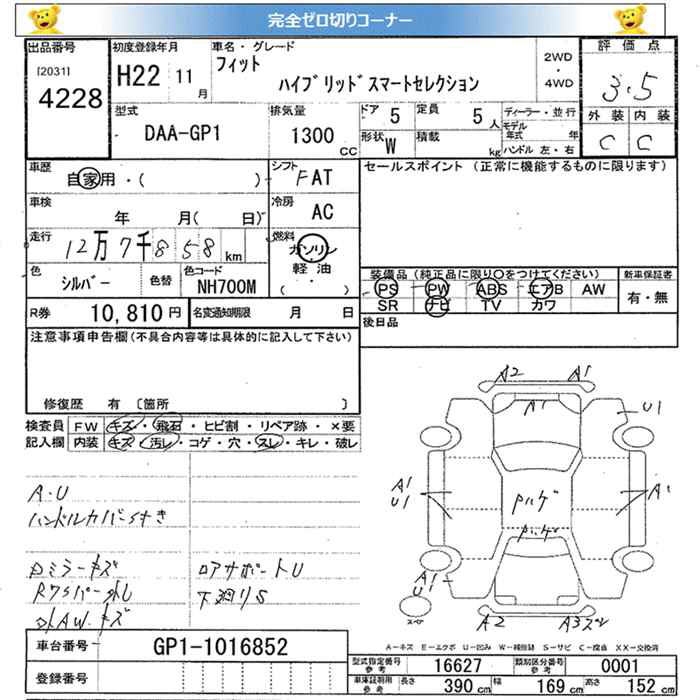 完全ゼロ切りコーナー
出品番号
[2031]
4228
初度登録年月
H22 11月
車名・グレード
フィット
ハイブリッドスマートセレクション
2WD
・
4WD
評価点
3.5
外装 内装
C C
型式
DAA-GP1
排気量
1300 CC
ドア 5
定員 5人
ディーラー・並行
モデル年式 年
形状 W
積載 kg
ハンドル 左・右
車歴
自家用・( )
シフト
FAT
セールスポイント (正常に機能するものに限ります)
車検
年 月( 日)
冷房
AC
走行
12万7千858km
燃料
ガソリン
軽油
( ・ )
色
シルバー
色替
色コード
NH700M
装備品(純正品に限り○をつけてください)
PS PW ABS エアB AW
SR ナビ TV カワ
新車保証書
有・無
R券 10,810円
名変通知期限 月 日
後日品
注意事項申告欄(不具合内容等は具体的に記入して下さい)
修復歴 有 〔箇所 〕
検査員記入欄
FW キズ・飛石・ヒビ割・リペア跡・×要
内装 キズ・汚レ・コゲ・穴・スレ・キレ・破レ
A・U
ハンドルカバーイすき
ロアサポートU
下廻りS
A2 A1
A1
U1
A1
U1
A1
Pハゲ
Pハゲ
A1
U1
スペア
A2 A3
A−キズ E−エクボ U−凹み W−補修跡 S−サビ C−腐食 XX−交換済
車台番号
GP1-1016852
登録番号
型式指定番号 参考 16627
類別区分番号 参考 0001
車庫証明用 参考
長さ 390cm 幅 169cm 高さ 152cm